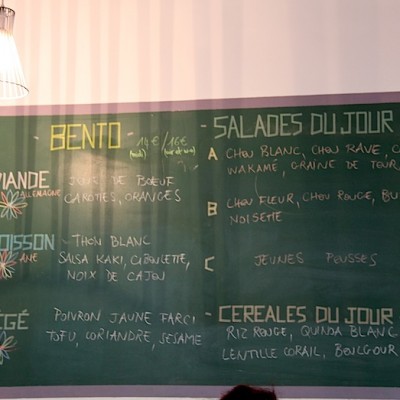 - BENTO -
14€/16€
(midi)
VIANDE
JOUE DE BOEUF
ALLEMAGNE
CAROTTES, ORANGES
POISSON
THON BLANC
SALSA KAKI, CIBOULETTE,
NOIX DE CAJOU
POIVRON JAUNE FARCI
TOFU, CORIANDRE, SESAME
- SALADES DU JOUR
A CHOU BLANC, CHOU RAVE,
WAKAMÉ, GRAINE DE
B CHOU FLEUR, CHOU ROUGE,
NOISETTE
C JEUNES POUSSES
- CEREALES DU JOUR
RIZ ROUGE, QUINOA BLANC
LENTILLE CORAIL, BOULGOUR